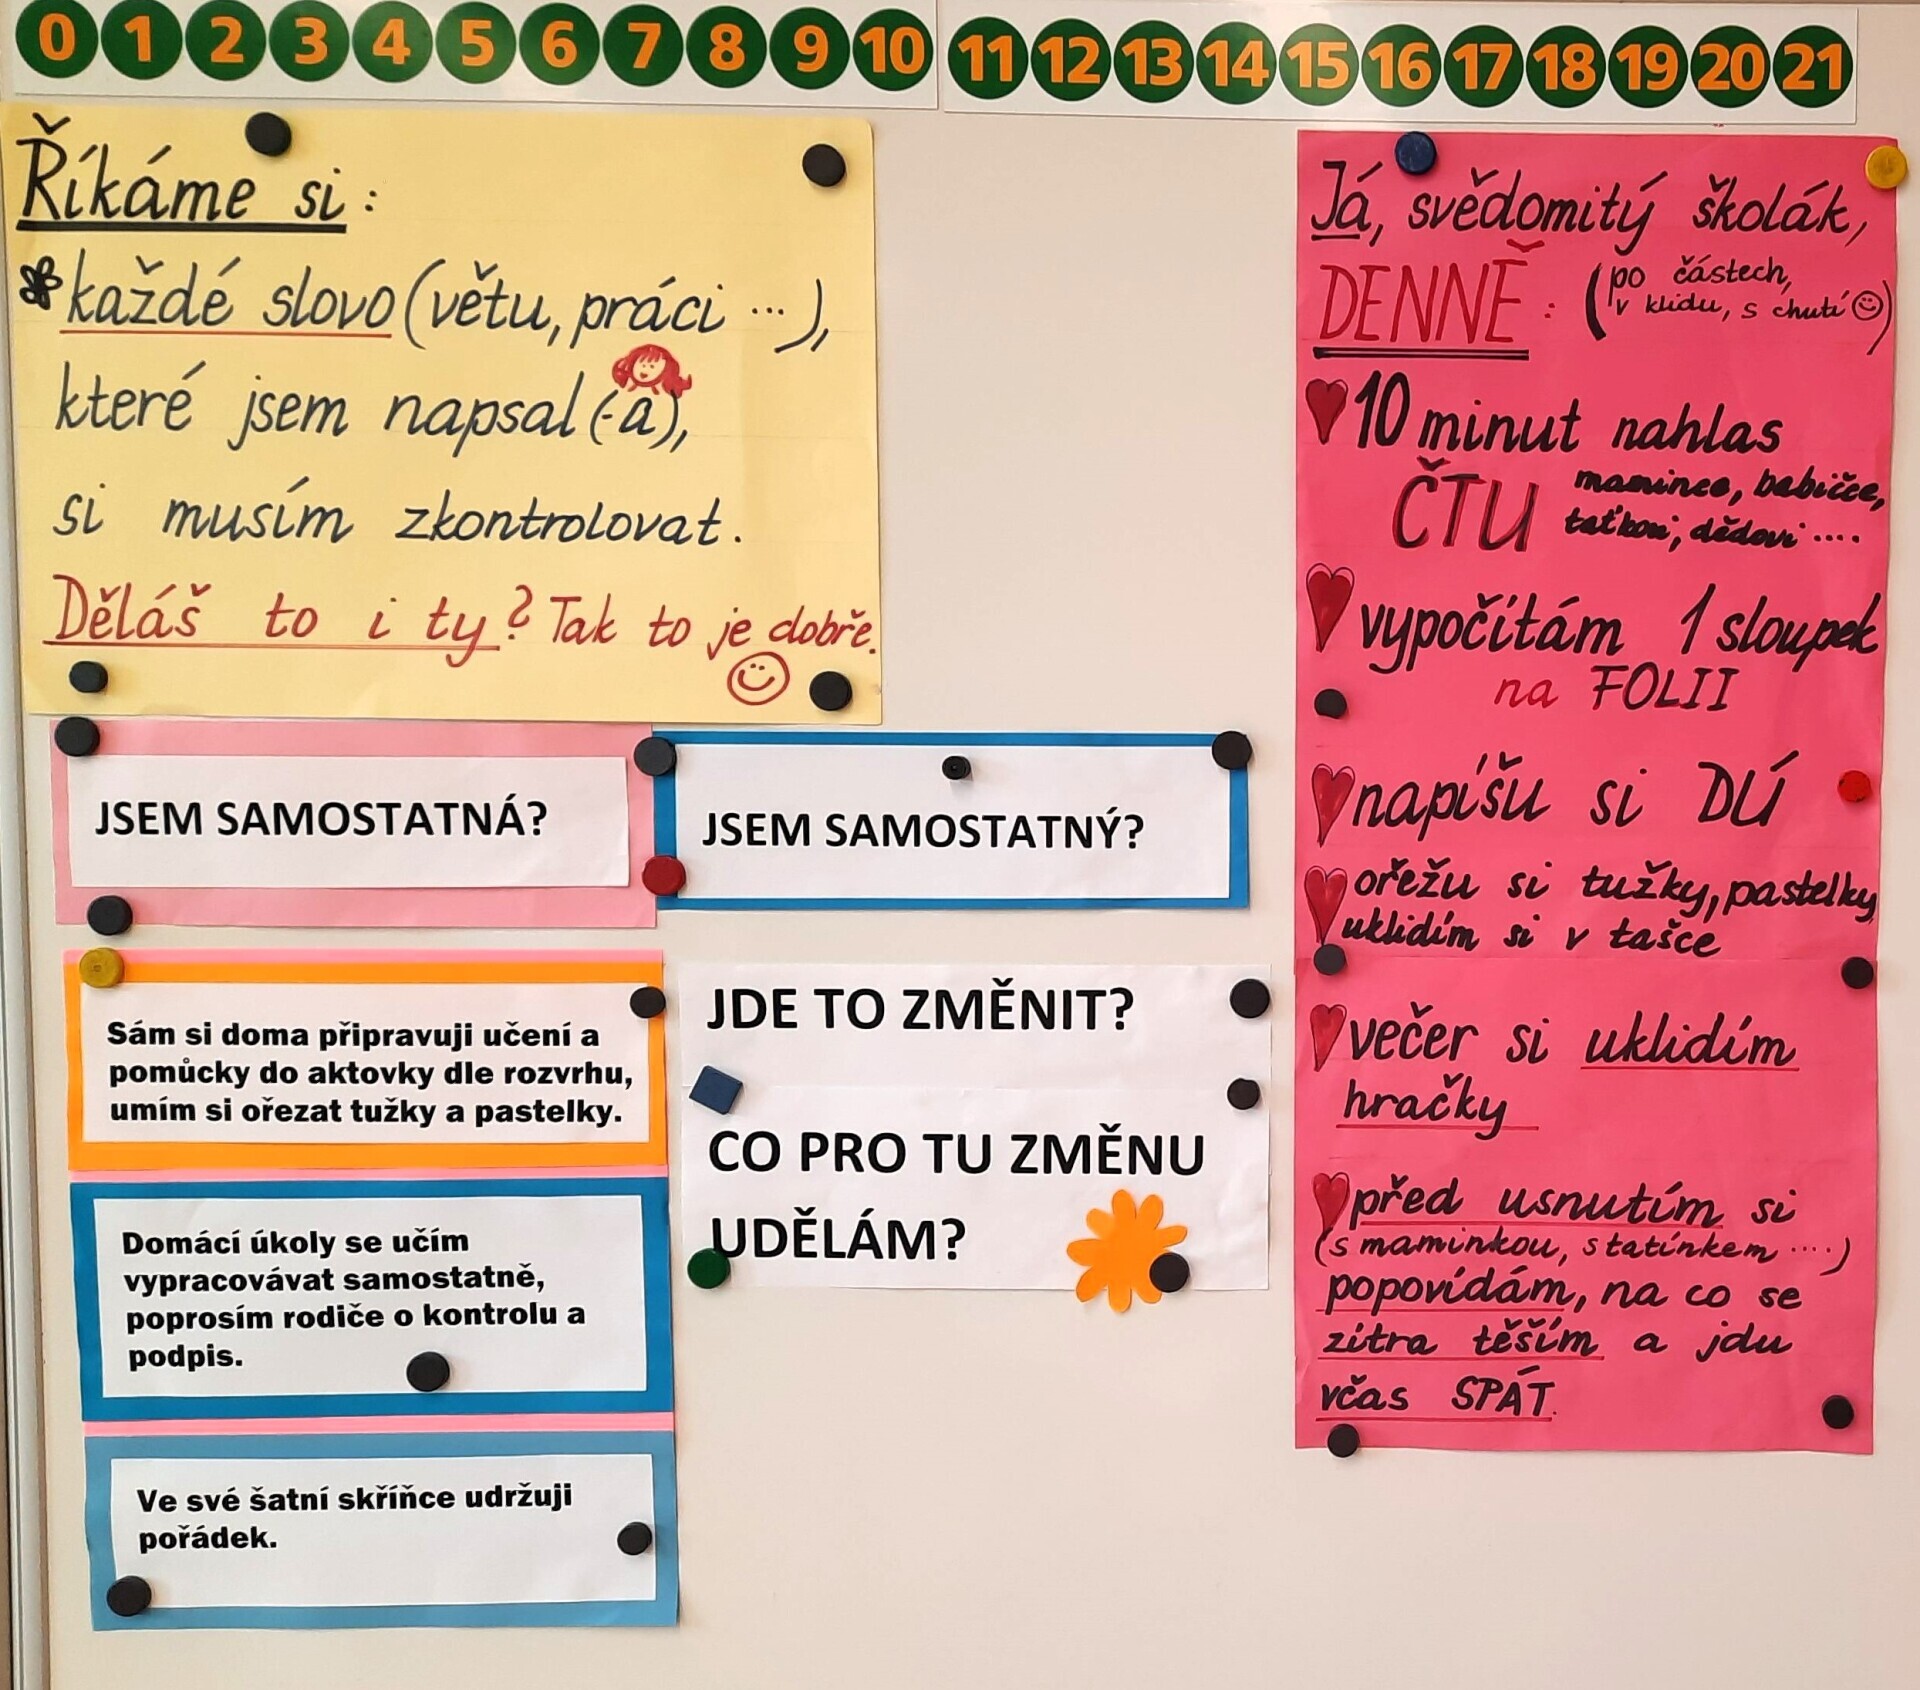 0 1 2 3 4 5 6 7 8 9 10 11 12 13 14 15 16 17 18 19 20 21
Říkáme si:
každé slovo (větu, práci ...),
které jsem napsal (-a),
si musím zkontrolovat.
Děláš to i ty? Tak to je dobře.
JSEM SAMOSTATNÁ?
JSEM SAMOSTATNÝ?
Sám si doma připravuji učení a
pomůcky do aktovky dle rozvrhu,
umím si ořezat tužky a pastelky.
Domácí úkoly se učím
vypracovávat samostatně,
poprosím rodiče o kontrolu a
podpis.
Ve své šatní skříňce udržuji
pořádek.
JDE TO ZMĚNIT?
CO PRO TU ZMĚNU
UDĚLÁM?
Já, svědomitý školák,
DENNĚ: (po částech,
v klidu, s chutí ☺)
10 minut nahlas
ČTU mamince, babičce,
taťkovi, dědovi ....
vypočítám 1 sloupek
na FOLII
napíšu si DÚ
ořežu si tužky, pastelky,
uklidím si v tašce
večer si uklidím
hračky
před usnutím si
(s maminkou, s tatínkem ....)
popovídám, na co se
zítra těším a jdu
včas SPÁT.